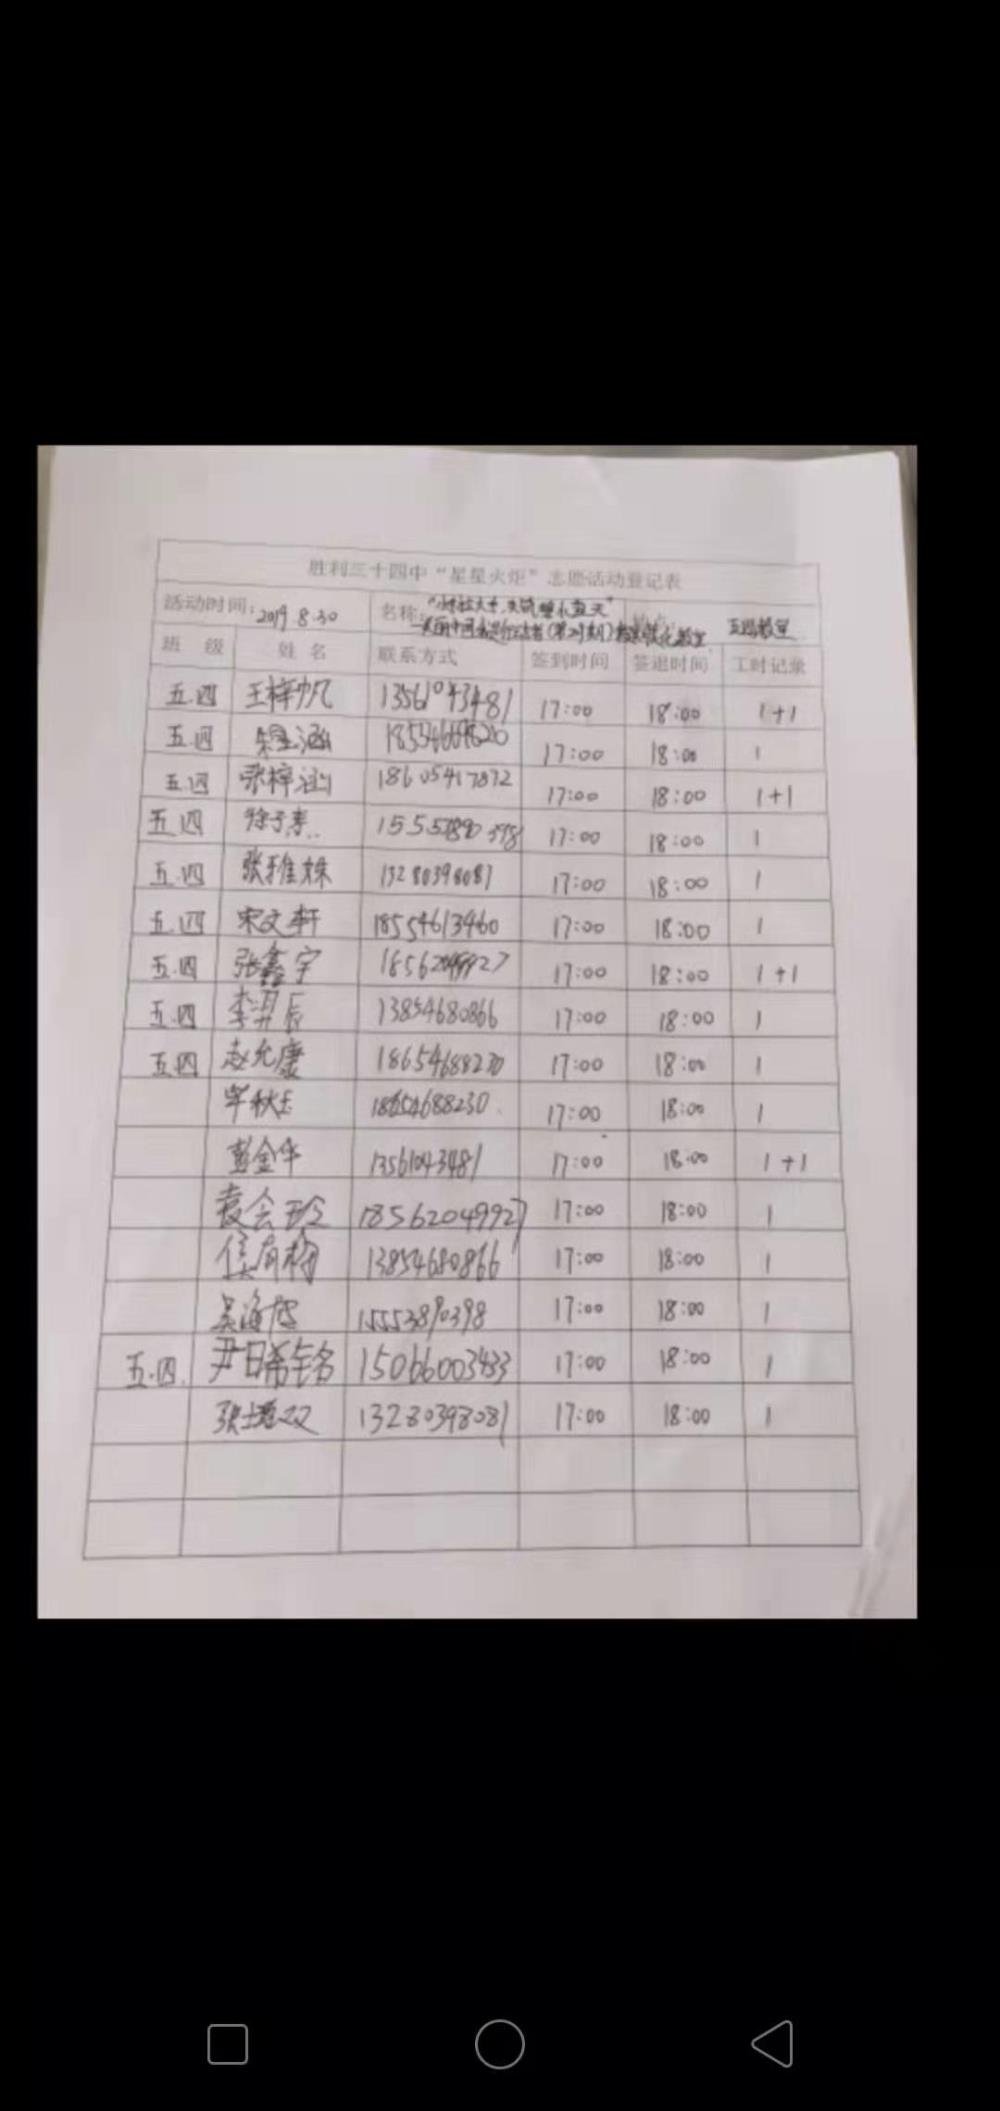 胜利三十四中“星星火炬”志愿活动登记表
活动时间：2019 8.30 名称：
班 级 姓 名 联系方式 签到时间 签退时间 工时记录
五.四 王梓帆 13561043481 17:00 18:00 1+1
五.四 17:00 18:00 1
五.四 张梓涵 18605417872 17:00 18:00 1+1
五.四 17:00 18:00 1
五.四 张雅姝 13280398081 17:00 18:00 1
五.四 宋文轩 18554613460 17:00 18:00 1
五.四 张鑫宇 18562049927 17:00 18:00 1+1
五.四 李羿辰 13854680866 17:00 18:00 1
五.四 赵允康 18654688230 17:00 18:00 1
18654688230 17:00 18:00 1
彭金华 13561043481 17:00 18:00 1+1
袁会珍 18562049927 17:00 18:00 1
侯有梅 13854680866 17:00 18:00 1
15553890398 17:00 18:00 1
五.四. 尹日希铭 15066003433 17:00 18:00 1
13280398081 17:00 18:00 1